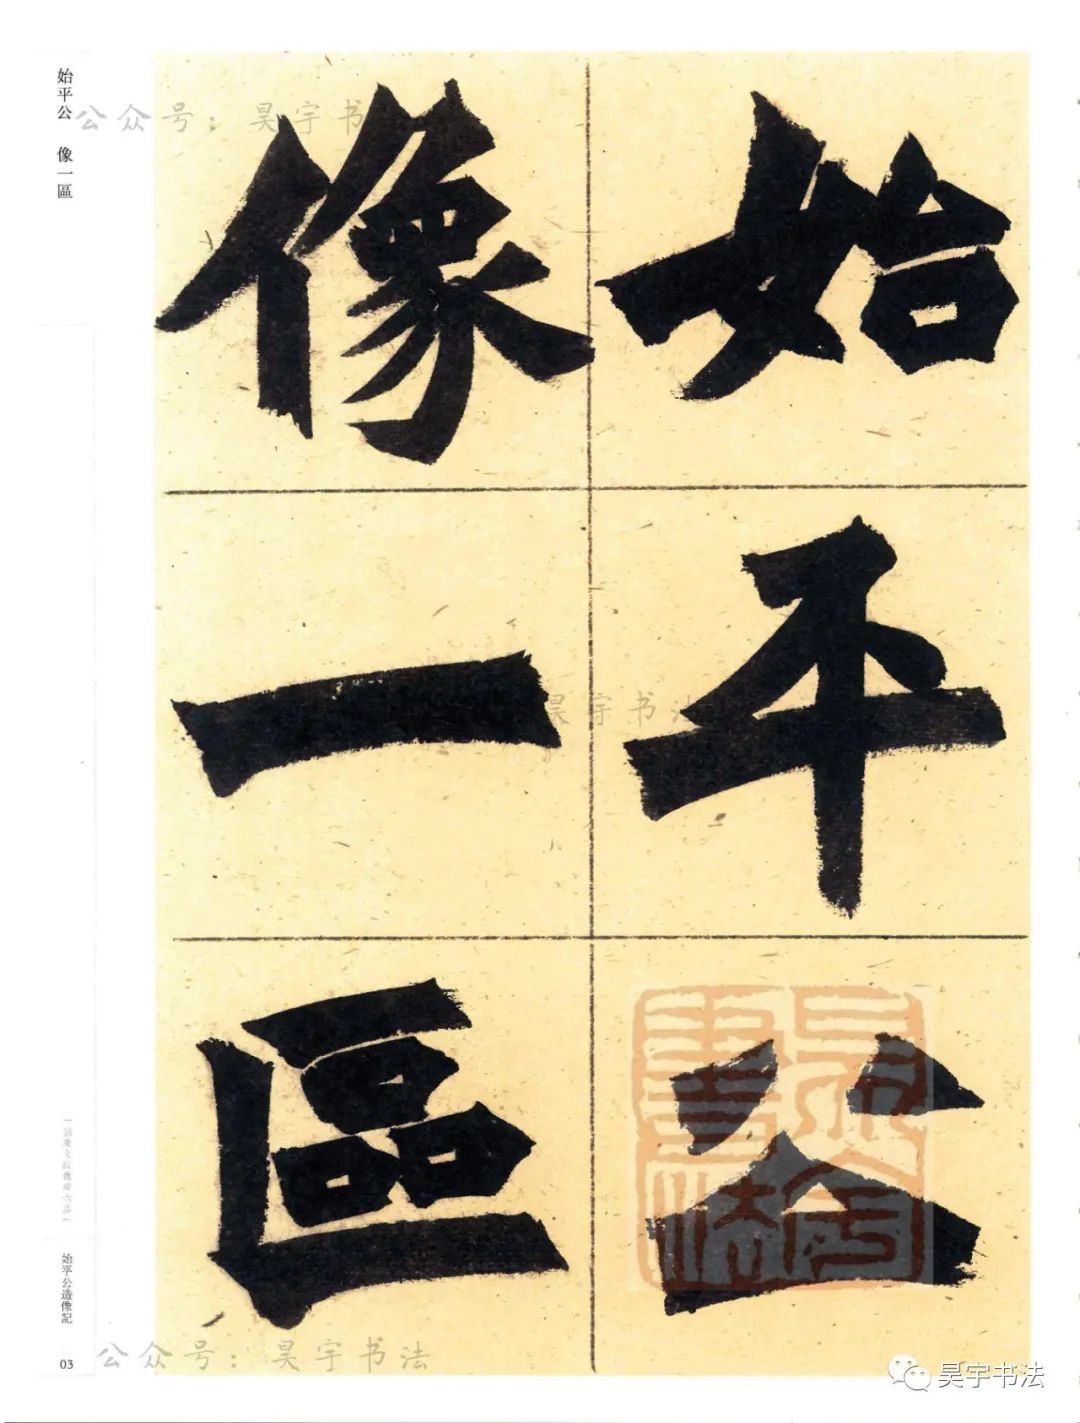 始平公
像一區
始平公　像一區
公众号：昊宇书
昊宇书法
昊宇書法
始平公造像記
03
公众号：昊宇书法
昊宇书法